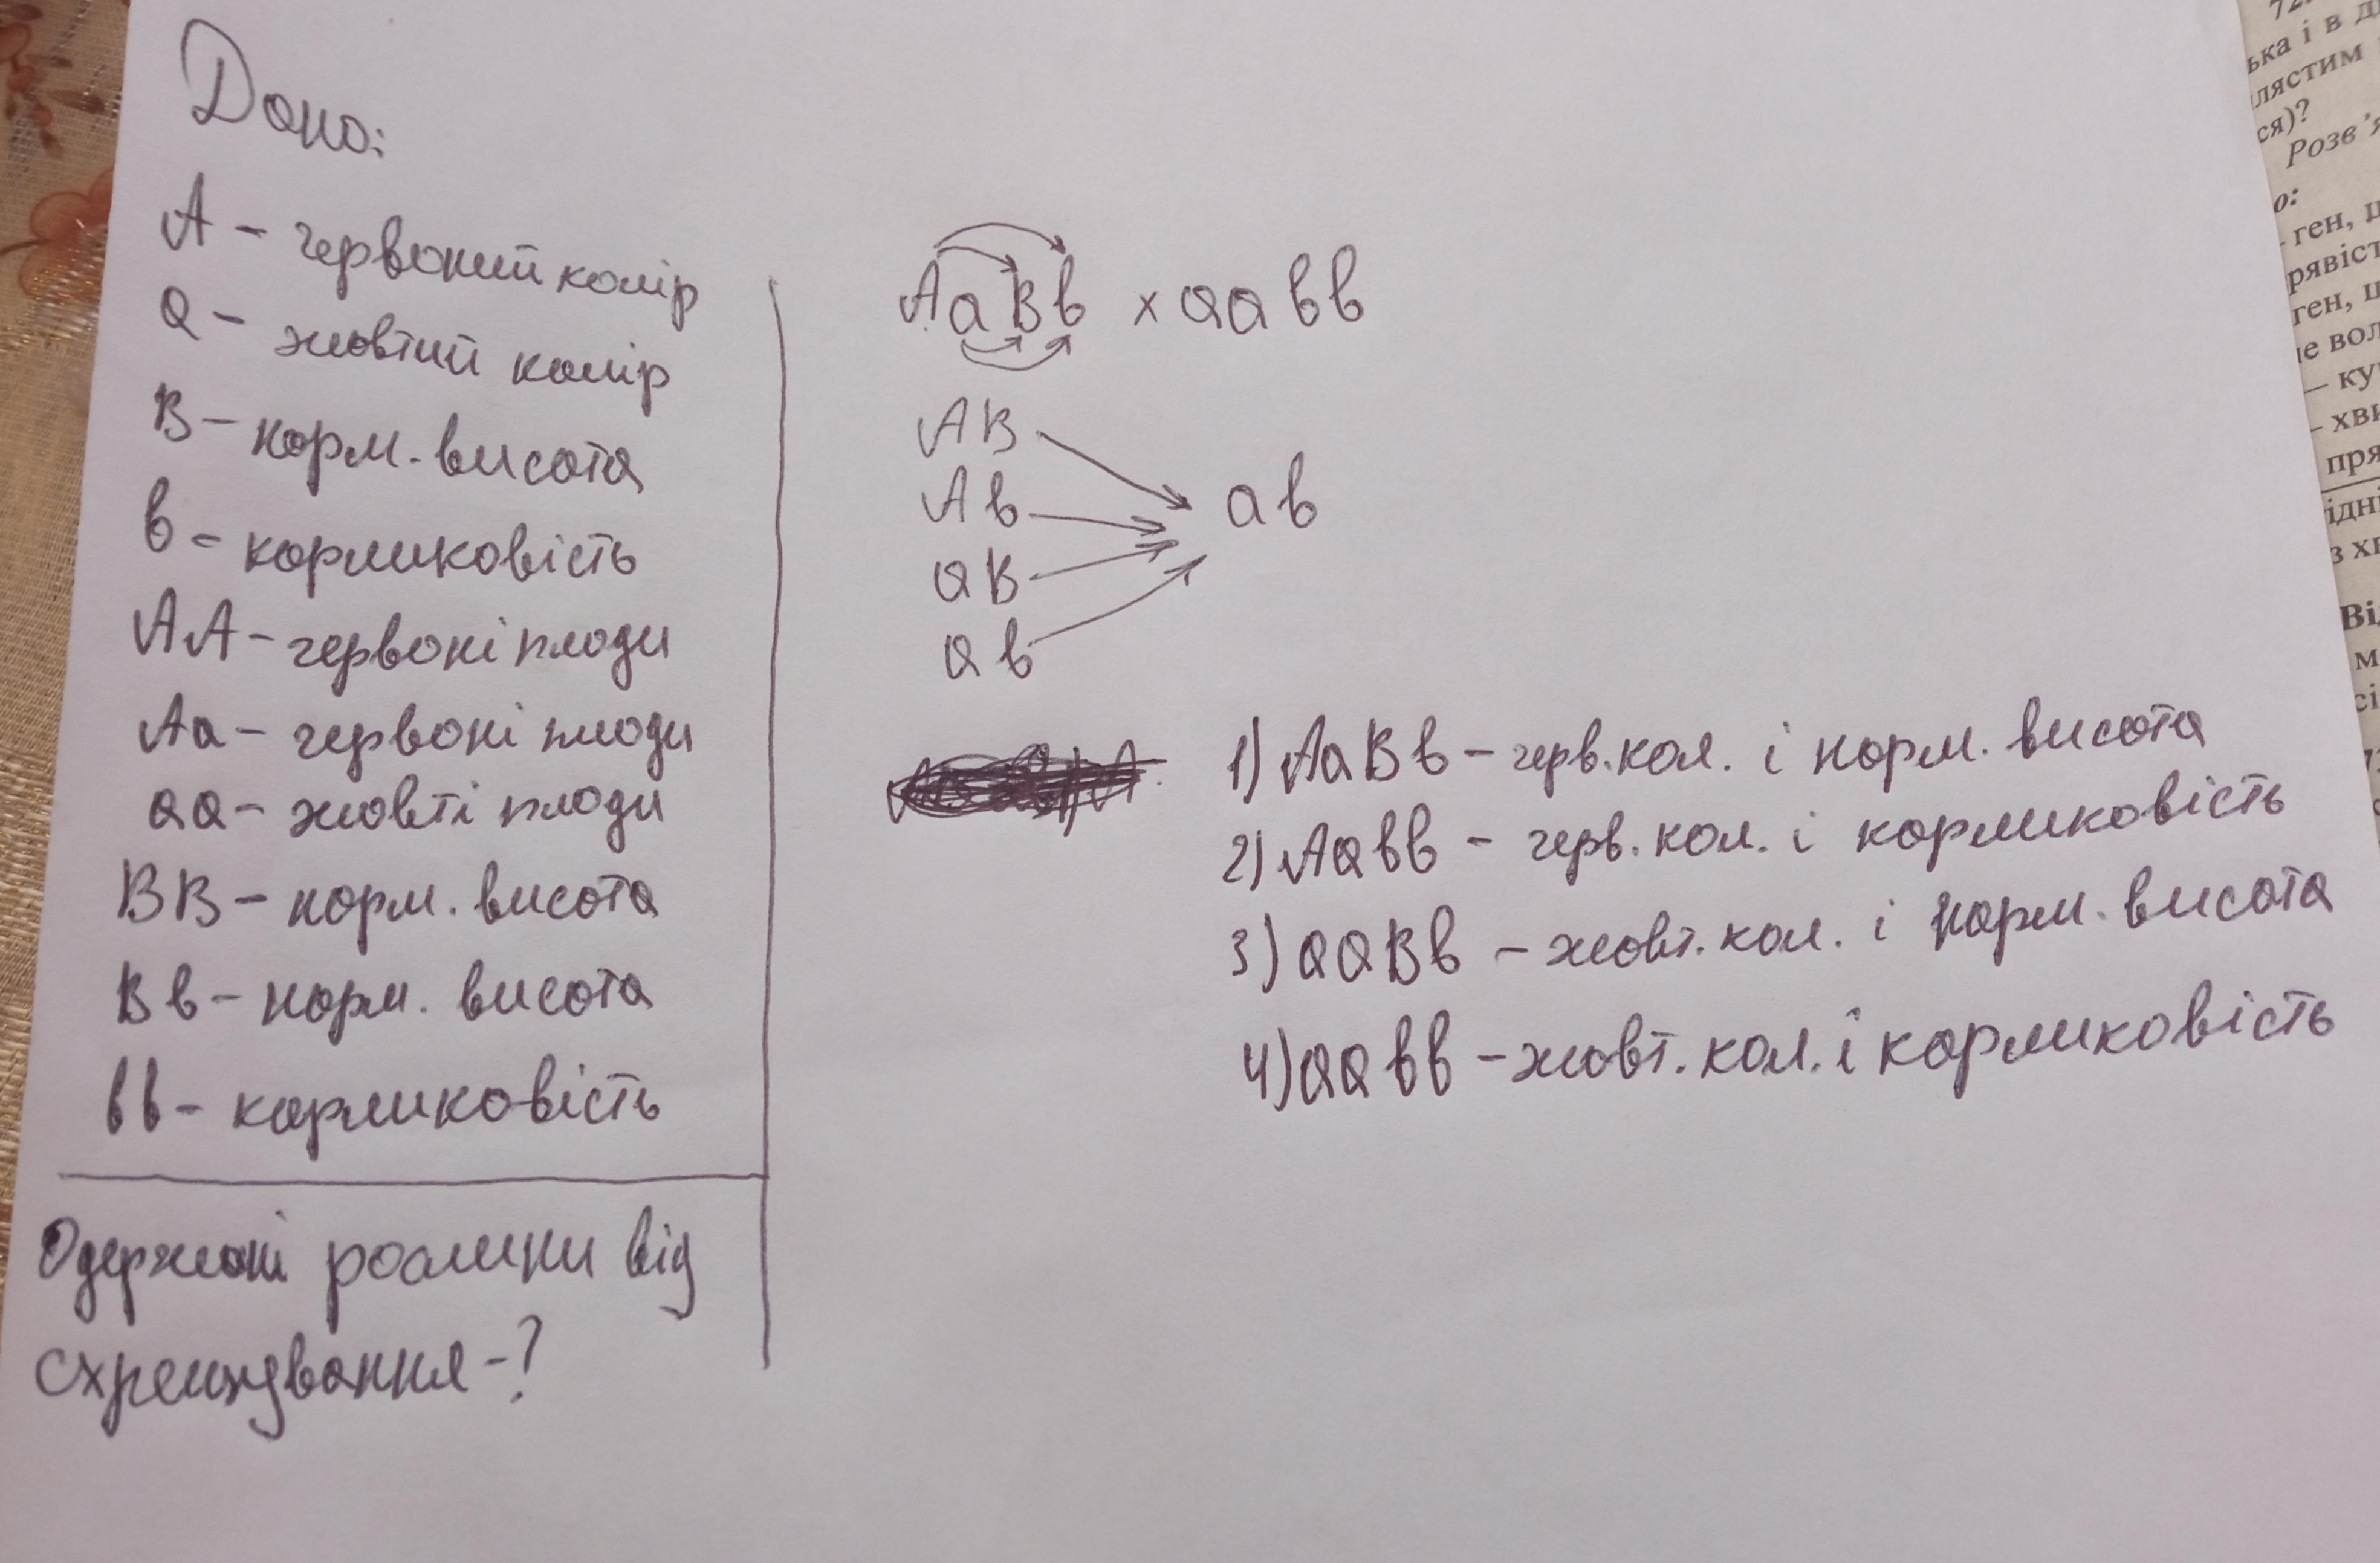 Дано:
А – червоний колір
а – жовтий колір
В – норм. висота
в – кормиковість
АА – червоні плоди
Аа – червоні плоди
аа – жовті плоди
ВВ – норм. висота
Вв – норм. висота
вв – кормиковість
Одержані рослини від
схрещування -?
АаВв х аавв
АВ
Ав
ав
аВ
ав
1) АаВв – черв.кол. і норм. висота
2) Аавв – черв. кол. і кормиковість
3) ааВв – жовт. кол. і норм. висота
4) аавв – жовт. кол. і кормиковість
72
ька і в
лястим
ся)?
Розв'я
о:
ген,
рявіст
ген,
е вол
– ку
- хви
пря
ідні
з хв
Ві
м
сі